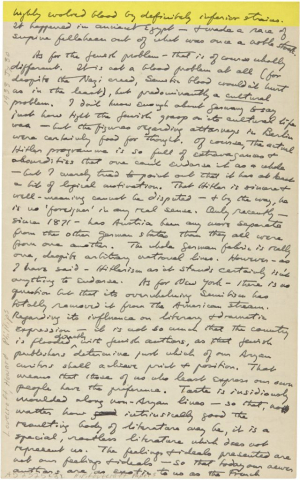 highly evolved blood by definitely inferior strains.
It happened in ancient Egypt — & made a race of
supine fellaheen out of what was once a noble stock.
As for the Jewish problem — that is of course wholly
different. It is not a blood problem at all (for
despite the Nazi creed, Semitic blood couldn't hurt
us in the least), but predominantly a cultural
problem. I don't know enough about Germany to say
just how tight the Jewish grasp on its cultural life
was — but the figures regarding attorneys in Berlin
were certainly food for thought. Of course, the actual
Hitler programme is so full of extravagances &
absurdities that one can't endorse it as a whole
— but I merely tried to point out that it has at least
a bit of logical motivation. That Hitler is sincere &
well-meaning cannot be disputed — & by the way, he
is no 'foreigner' in any real sense. Only recently —
since 1871 — has Austria been any more separate
from the other German states than they all were
from one another. The whole German fabric is really
one, despite arbitrary national lines. However — as
I have said — Hitlerism as it stands certainly isn't
anything to endorse. As for New York — there is no
question but that its overwhelming Semitism has
totally removed it from the American stream.
Regarding its influence on literary & dramatic
expression — it is not so much that the country
is flooded directly with Jewish authors, as that Jewish
publishers determine just which of our Aryan
writers shall achieve print & position. That
means that those of us who least express our own
people have the preference. Taste is insidiously
moulded along non-Aryan lines — so that, no
matter how intrinsically good the
resulting body of literature may be, it is a
special, rootless literature which does not
represent us. The feelings & ideals presented are
not our feelings & ideals — so that today our newer
authors are as exotic to us as the French